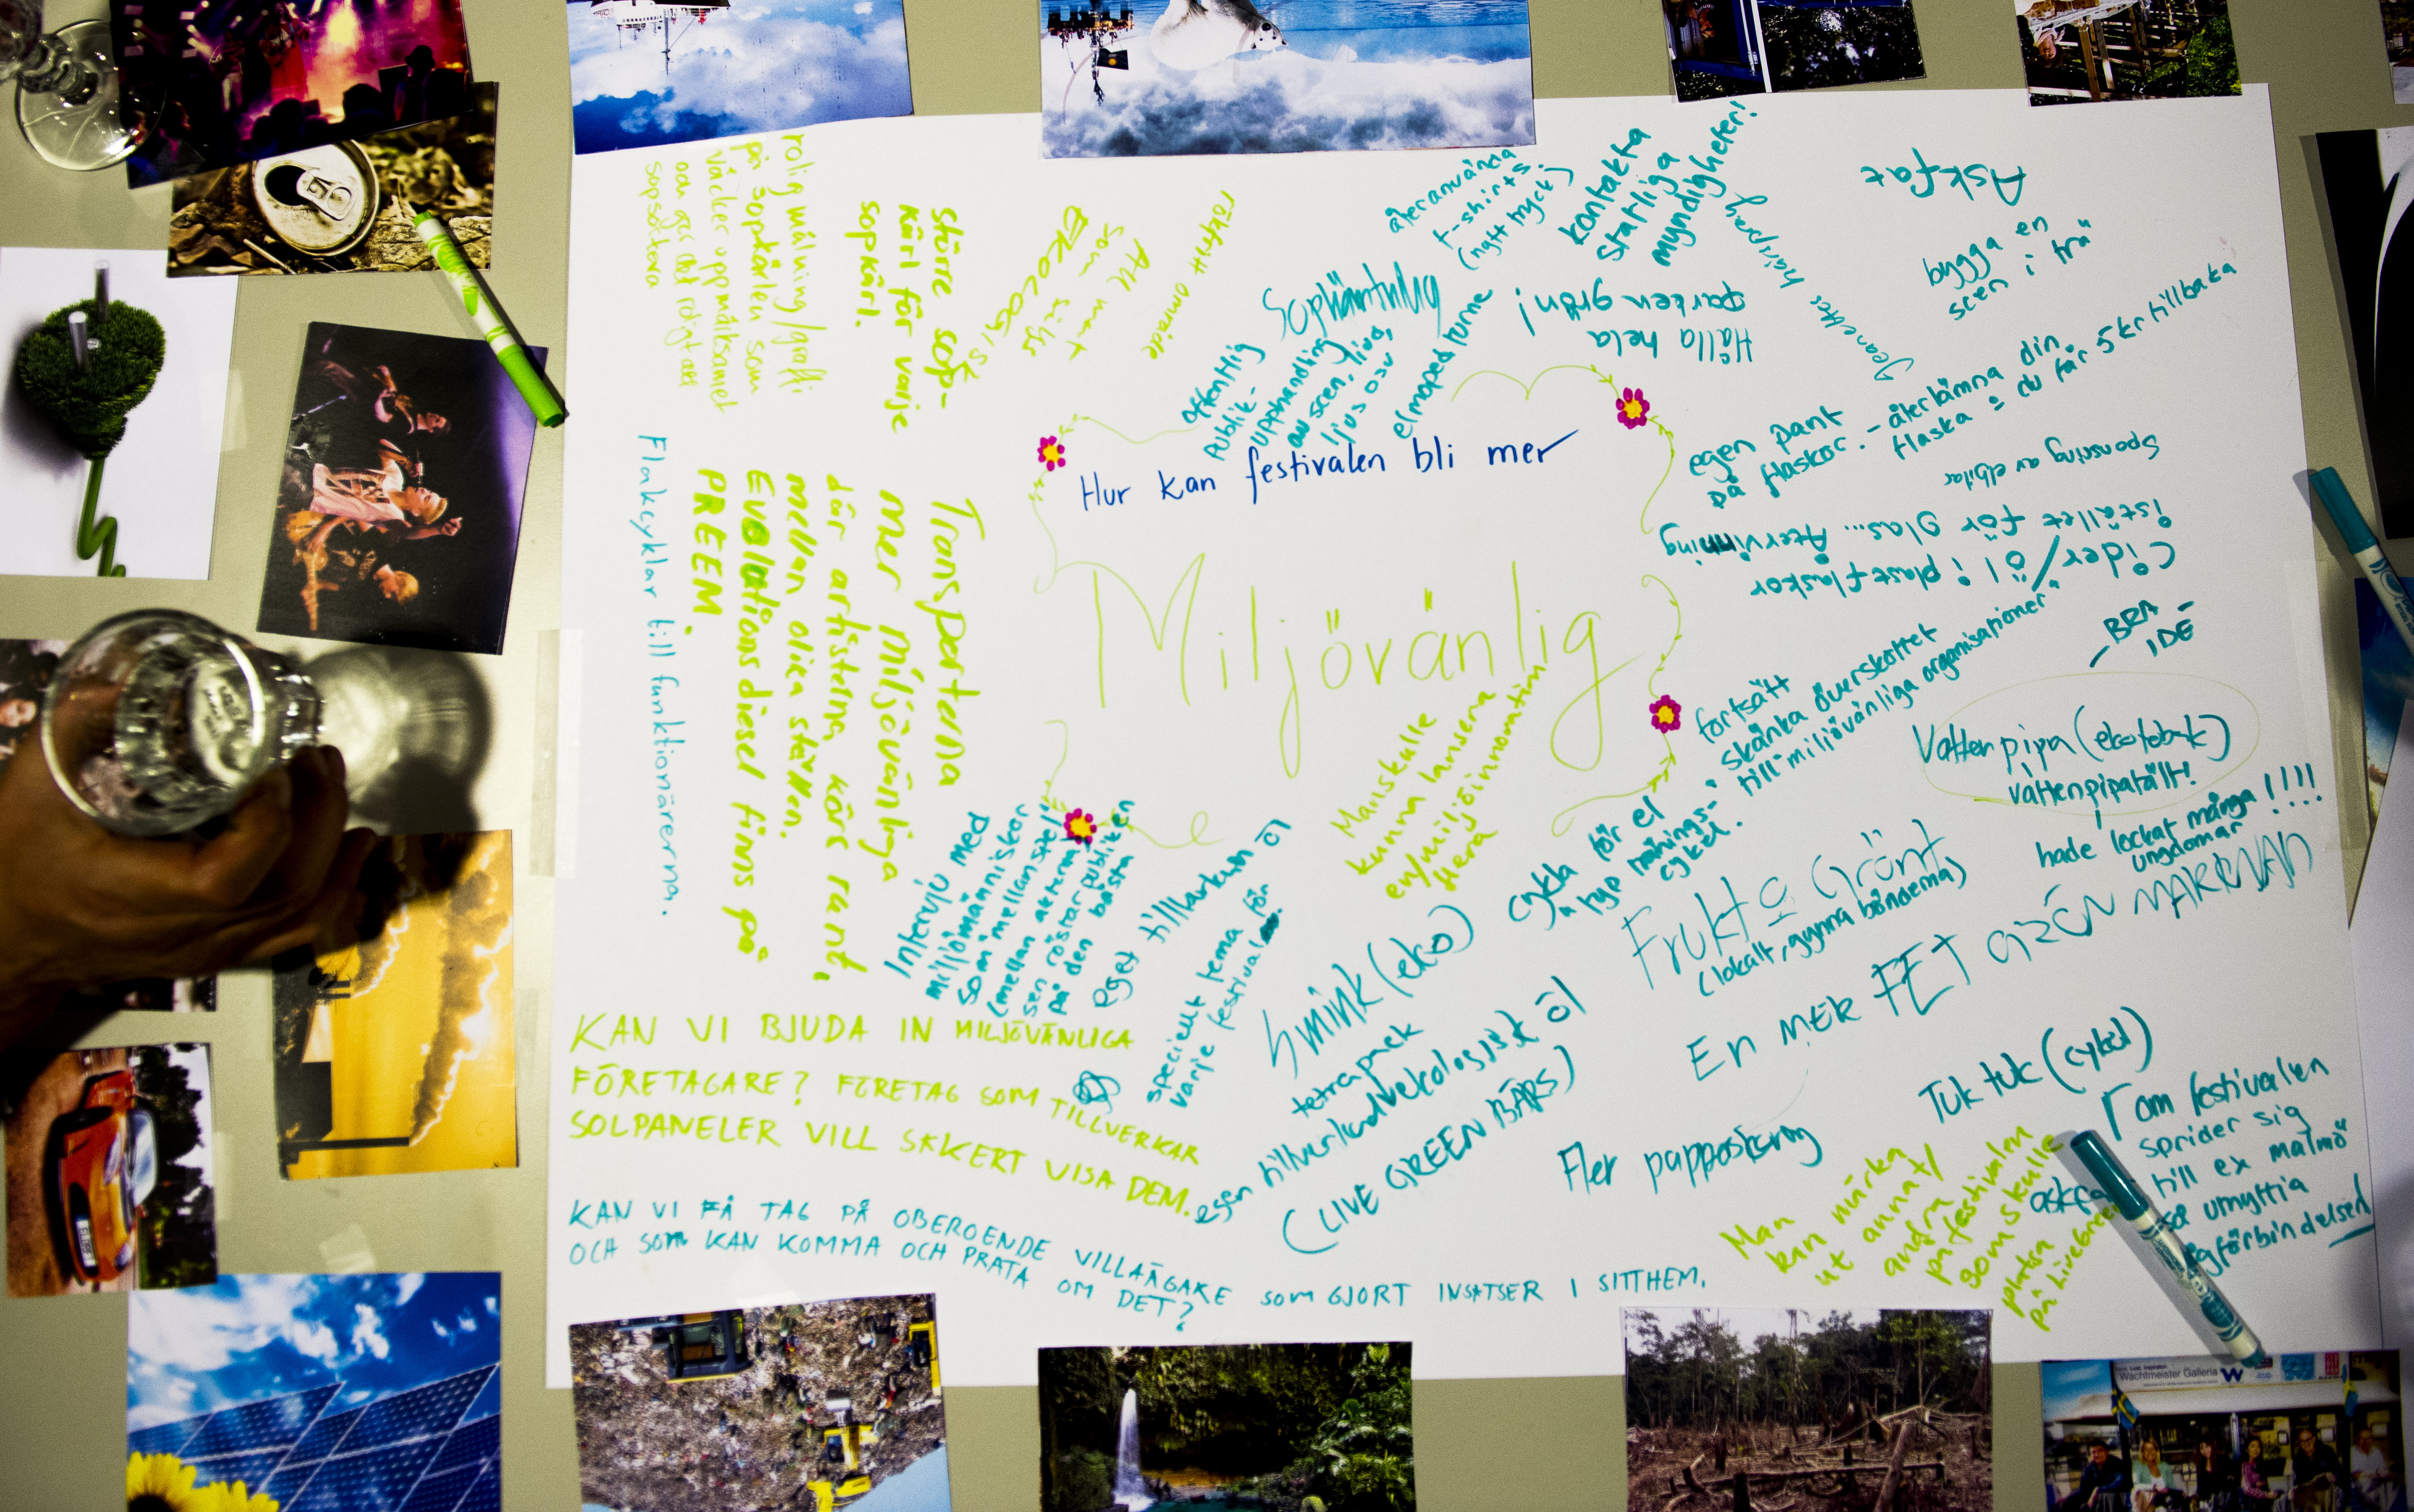 Hur kan festivalen bli mer
Miljövänlig
rolig målning/graffi
på sopkärlen som
väcker uppmärksamhet
och gör det roligt att
sopsortera
större sop-
kärl för varje
sopkärl.
Allt mat
som säljs
EKOLOGISK
rökfritt område
Flakcyklar till funktionärerna.
Transporterna
mer miljövänliga
där artisterna körs runt,
mellan olica ställen.
Evolutionsdiesel finns på
PREEM.
offentlig
Publik-
upphandling
av scen, ljud,
ljus osv
Sophämtning
elmoped/turne
återanvända
t-shirts
(nytt tryck)
kontakta
statliga
myndigheter!
Hålla hela
parken grön!
Jeanettes hårspray
Askfat
bygga en
scen i trä
egen pant
på flaskor. - återlämna din
flaska = du får 5 kr tillbaka
Sponsring av elbilar
Cider/öl i plastflaskor
istället för glas... Återvinning
- BRA
IDE -
fortsätt
"skänka överskottet
till miljövänliga organisationer"
Vattenpipa (ekotobak)
vattenpipatält!
hade lockat många !!!!
ungdomar
Manskulle
kunna lansera
en/miljöinnovation
flera
cykla för el
"typ tränings-
cykel.
Frukt & Grönt
(lokalt, gynna bönderna)
En MER FET GRÖN MARKNAD
Intervju med
miljömänniskor
som "mellanspel"
(mellan akterna)
sen röstar publiken
på den bästa
eget tillverkat öl
speciellt tema för
varje festival
Smink (eko)
tetrapack
egen tillverkad ekologiskt öl
(LIVE GREEN BÄRS)
Fler pappåtervinning
Tuk tuk (cykel)
om festivalen
sprider sig
till ex malmö
så utnyttja
tågförbindelsen
askfat
Man
kan märka
ut annat/
andra
på festivalen
som skulle
platsa
på Livegreen
KAN VI BJUDA IN MILJÖVÄNLIGA
FÖRETAGARE? FÖRETAG SOM TILLVERKAR
SOLPANELER VILL SÄKERT VISA DEM.
KAN VI FÅ TAG PÅ OBEROENDE VILLAÄGARE SOM GJORT INSATSER I SITT HEM.
OCH SOM KAN KOMMA OCH PRATA OM DET?
Wachtmeister Galleria